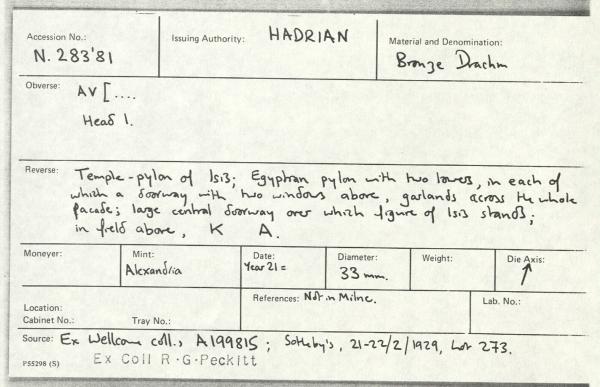 Accession No.: Issuing Authority: HADRIAN Material and Denomination:
N. 283'81 Bronze Drachm
Obverse: AV [....
Head l.
Reverse: Temple-pylon of Isis; Egyptian pylon with two towers, in each of
which a doorway with two windows above, garlands across the whole
facade; large central doorway over which figure of Isis stands;
in field above, K A.
Moneyer: Mint: Date: Diameter: Weight: Die Axis:
Alexandria Year 21 = 33 mm. ↑
Location: References: Not in Milne. Lab. No.:
Cabinet No.: Tray No.:
Source: Ex Wellcome coll., A199815; Sotheby's, 21-22/2/1929, Lot 273.
P55298 (S) Ex Coll R·G·Peckitt